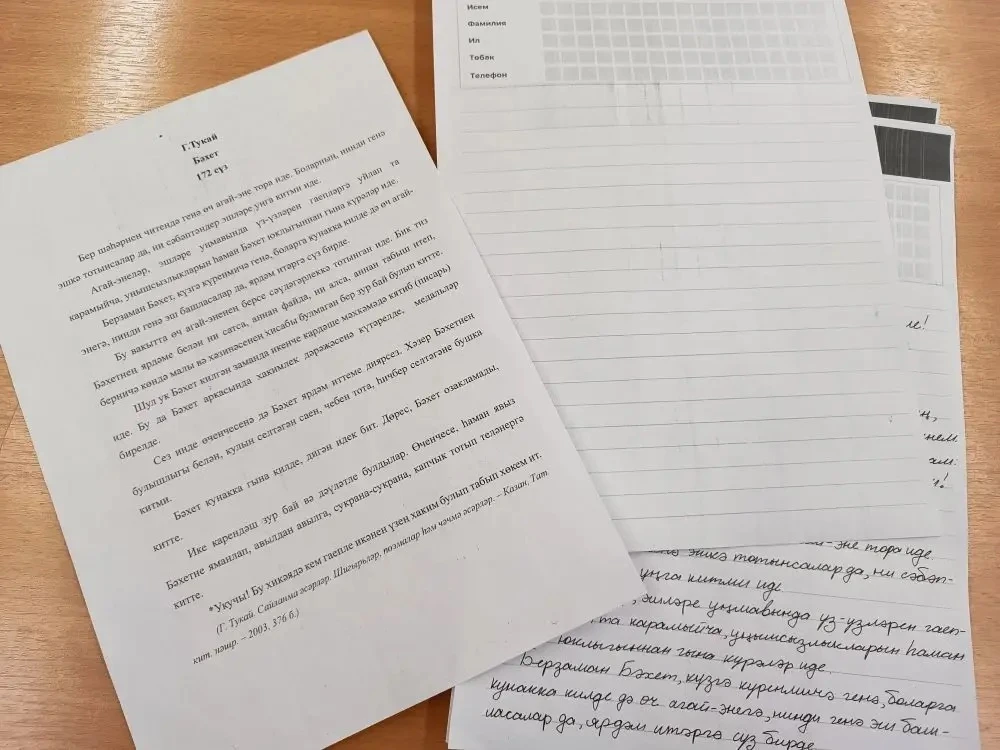 Г.Тукай
Бәхет
172 сүз
Бер шәһәрнең читендә генә өч агай-эне тора иде. Боларның, нинди генә
эшкә тотынсалар да, ни сәбәптәндер эшләре уңга китми иде.
Агай-энеләр, эшләре уңмавында үз-үзләрен гаепләргә уйлап та
карамыйча, уңышсызлыкларын һаман Бәхет юклыгыннан гына күрәләр иде.
Берзаман Бәхет, күзгә күренмичә генә, боларга кунакка килде дә өч агай-
энегә, нинди генә эш башласалар да, ярдәм итәргә сүз бирде.
Бу вакытта өч агай-эненең берсе сәүдәгәрлеккә тотынган иде. Бик тиз
Бәхетнең ярдәме белән ни сатса, аннан файда, ни алса, аннан табыш итеп,
берничә көндә малы вә хәзинәсенең хисабы булмаган бер зур бай булып китте.
Шул ук Бәхет килгән заманда икенче кардәше мәхкәмәдә кятиб (писарь)
иде. Бу да Бәхет аркасында хакимлек дәрәҗәсенә күтәрелде. медальләр
бирелде.
Сез инде өченчесенә дә Бәхет ярдәм иттеме диярсез. Хәзер Бәхетнең
булышлыгы белән, кулын селтәгән саен, чебен тота, һичбер селтәгәне бушка
китми.
Бәхет кунакка гына килде, дигән идек бит. Дөрес, Бәхет озакламады,
китте.
Ике карендәш зур бай вә дәүләтле булдылар. Өченчесе, һаман явыз
Бәхетне яманлап, авылдан авылга, сукрана-сукрана, капчык тотып теләнергә
китте.
*Укучы! Бу хикәядә кем гаепле икәнен үзең хаким булып табып хөкем ит.
(Г. Тукай. Сайланма әсәрләр. Шигырьләр, поэмалар һәм чәчмә әсәрләр. – Казан, Тат.
кит. нәшр. – 2003, 376 б.)
Исем
Фамилия
Ил
Төбәк
Телефон
эне тора иде.
эшкә тотынсалар да, ни сәбәп-
уңга китми иде
, эшләре уңмавында үз-үзләрен гаеп-
та карамыйча, уңышсызлыкларын һаман
юклыгыннан гына күрәләр иде.
Берзаман Бәхет, күзгә күренмичә генә, боларга
кунакка килде дә өч агай-энегә, нинди генә эш баш-
ласалар да, ярдәм итәргә сүз бирде.